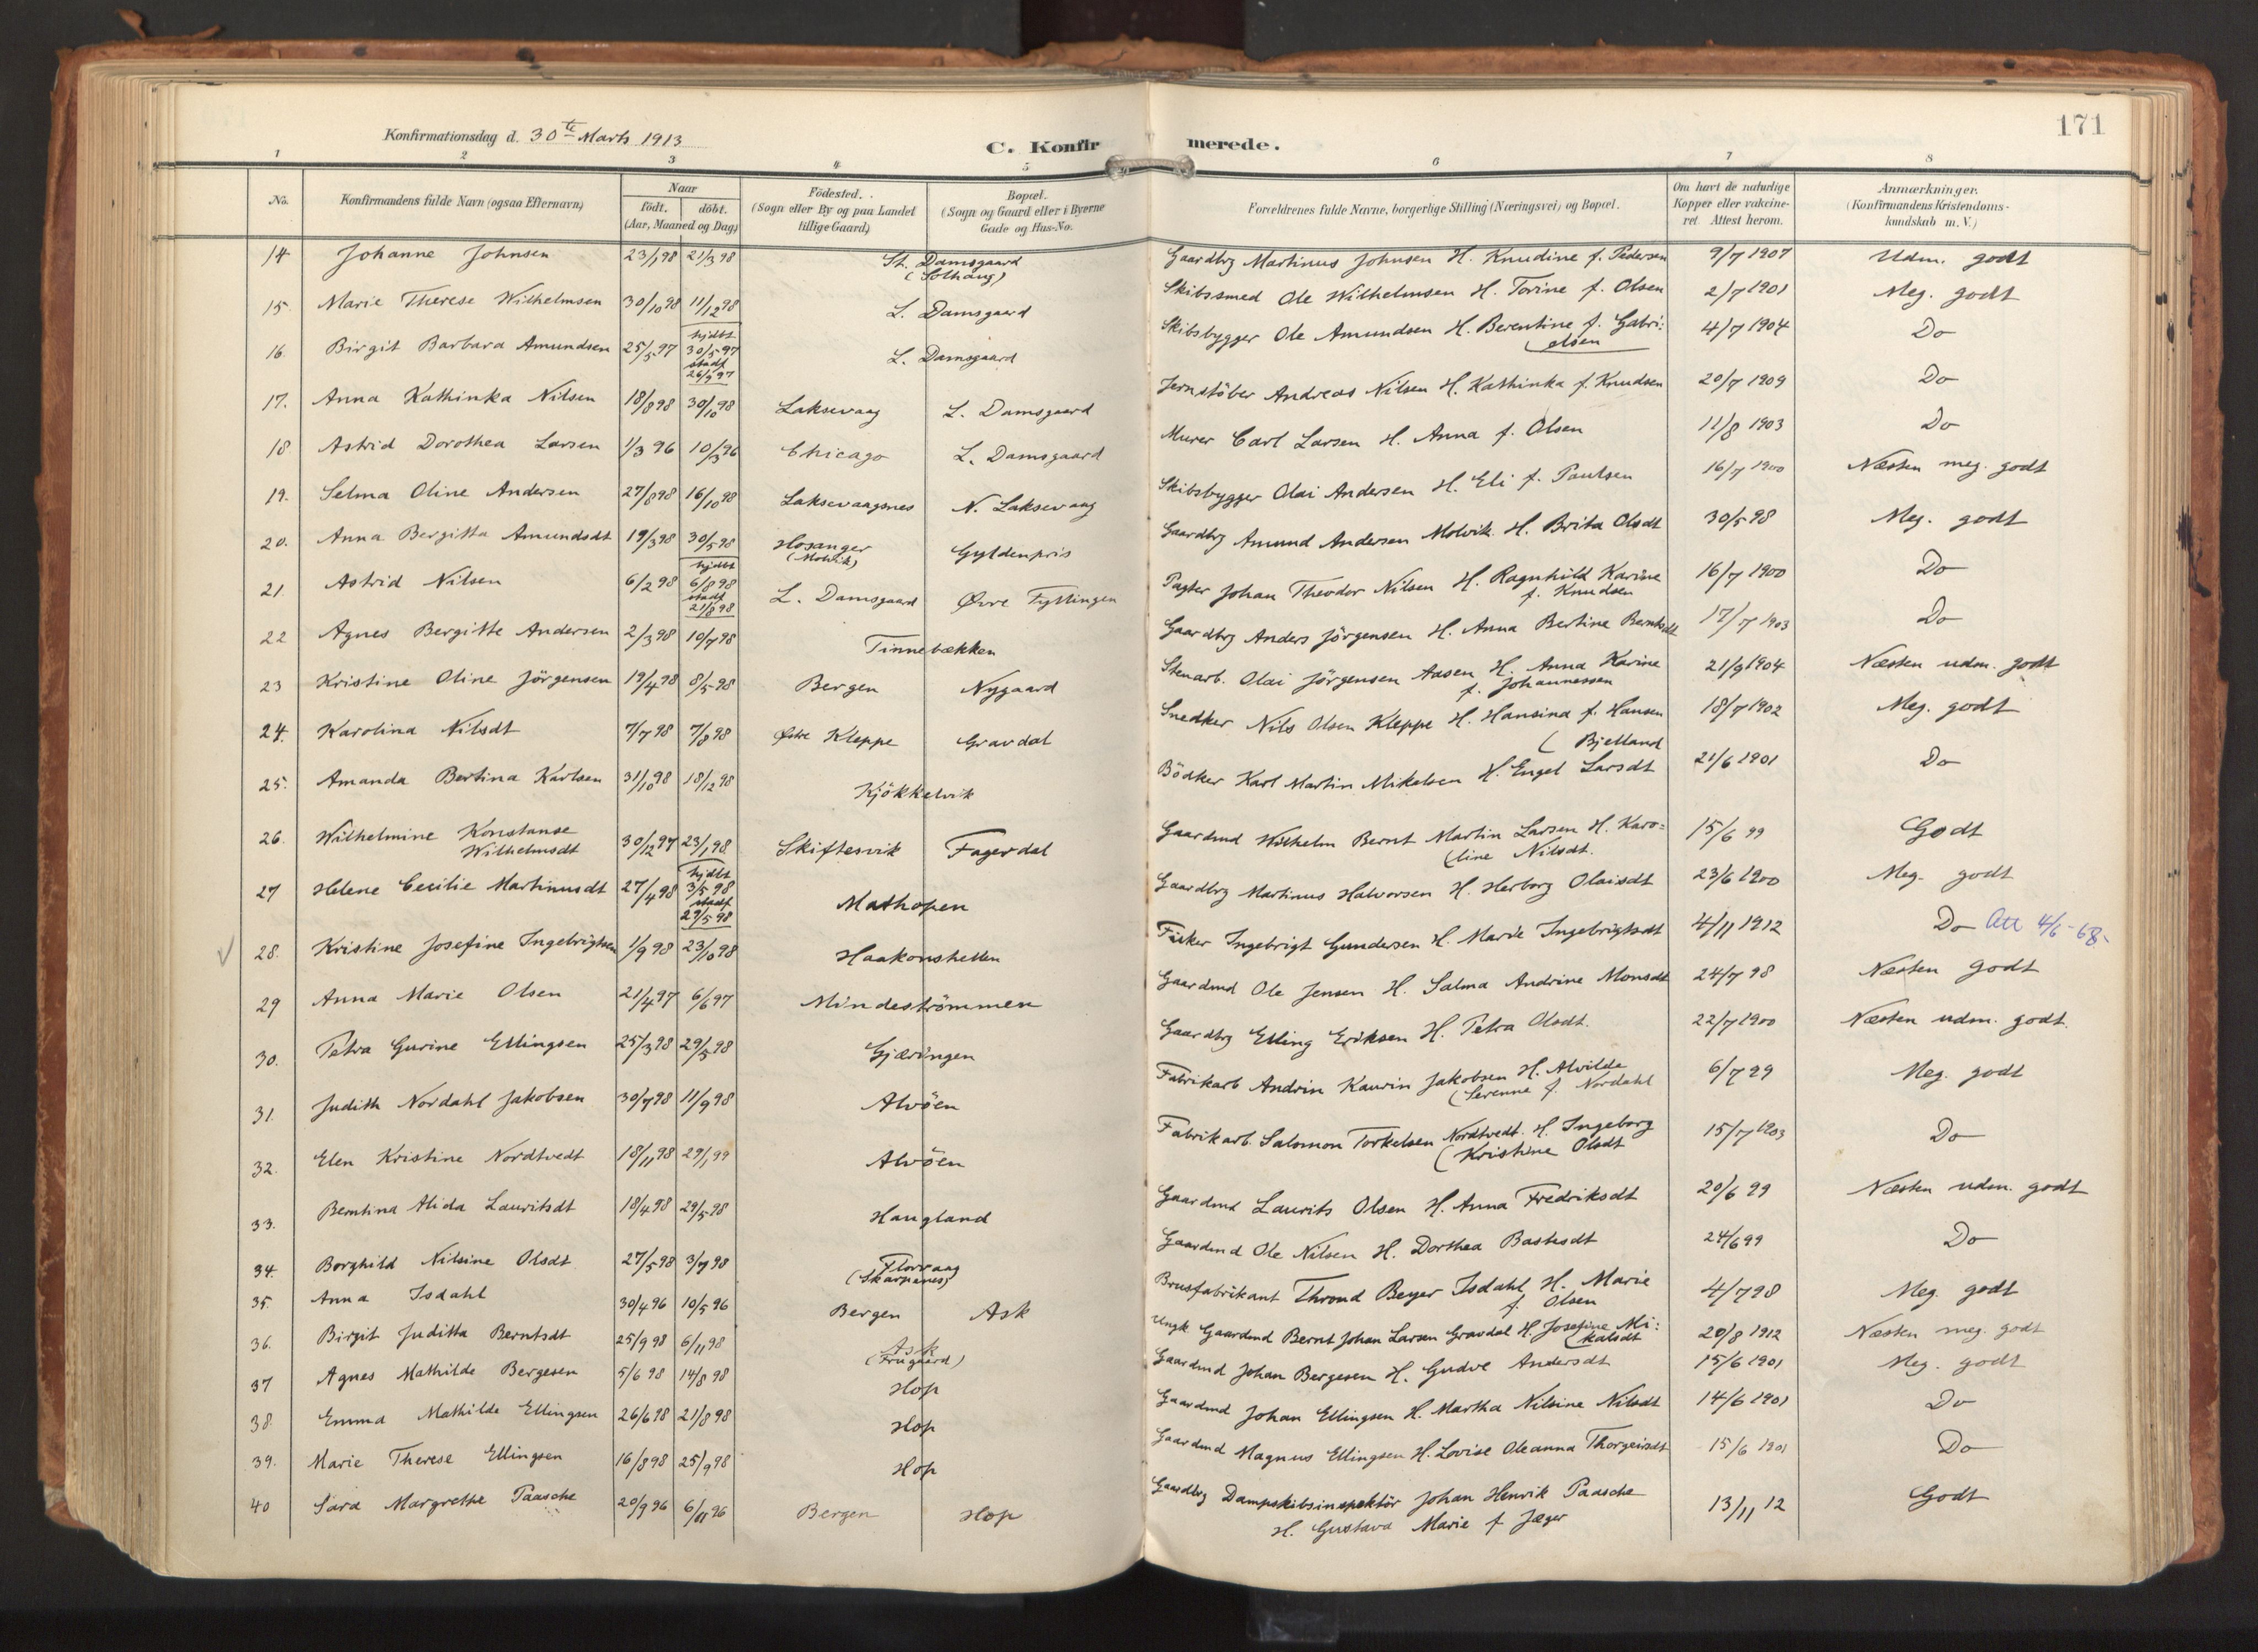 171
Konfirmationsdag d. 30te Marts 1913
C. Konfirmerede.
1 2 3 4 5 6 7 8
No. Konfirmandens fulde Navn (ogsaa Efternavn) Naar födt. döbt. (Aar, Maaned og Dag) Födested. (Sogn eller By og paa Landet tillige Gaard) Bopæl. (Sogn og Gaard eller i Byerne Gade og Hus-No. Forældrenes fulde Navne, borgerlige Stilling (Næringsvei) og Bopæl. Om havt de naturlige Kopper eller vakcineret. Attest herom. Anmærkninger. (Konfirmandens Kristendomskundskab m. V.)
14 Johanne Johnsen 23/1 98 21/3 98 St. Damsgaard (Solhaug) Gaardbrg Martinus Johnsen H. Knudine f. Pedersen 9/7 1907 Udm. godt
15. Marie Therese Wilhelmsen 30/10 98 11/12 98 L. Damsgaard Skibssmed Ole Wilhelmsen H. Torine f. Olsen 2/7 1901 Meg. godt
16. Birgit Barbara Amundsen 25/5 97 hjdbt 30/5 97 stadf 26/9 97 L. Damsgaard Skibsbygger Ole Amundsen H. Berentine f. Gabri: (elsen 4/7 1904 Do
17. Anna Kathinka Nilsen 18/8 98 30/10 98 Laksevaag L. Damsgaard Jernstöber Andreas Nilsen H. Kathinka f. Knudsen 20/7 1909 Do
18 Astrid Dorothea Larsen 1/3 96 10/3 96 Chicago L. Damsgaard Murer Carl Larsen H. Anna f. Olsen 11/8 1903 Do
19. Selma Oline Andersen 27/8 98 16/10 98 Laksevaagsnes N. Laksevaag Skibsbygger Olai Andersen H. Eli f. Paulsen 16/7 1900 Næsten meg. godt
20. Anna Bergitta Amundsdt 19/3 98 30/5 98 Hosanger (Molvik) Gyldenpris Gaardbrg Amund Andersen Molvik. H. Brita Olsdt 30/5 98 Meg. godt
21. Astrid Nilsen 6/2 98 hjdbt 6/8 98 stadf 21/8 98 L. Damsgaard Øvre Fyllingen Pagter Johan Theodor Nilsen H. Ragnhild Karine f. Knudsen 16/7 1900 Do
22 Agnes Bergitte Andersen 2/3 98 10/7 98 Tinnebækken Gaardbrg Anders Jörgensen H. Anna Bertine Berntsdt 17/7 1903 Do
23 Kristine Oline Jörgensen 19/4 98 8/5 98 Bergen Nygaard Stenarb. Olai Jörgensen Aasen H. Anna Karine f. Johannessen 21/9 1904 Næsten udm. godt
24. Karolina Nilsdt 7/7 98 7/8 98 Østre Kleppe Gravdal Snedker Nils Olsen Kleppe H. Hansina f. Hansen (Bjelland 18/7 1902 Meg. godt
25. Amanda Bertina Karlsen 31/10 98 18/12 98 Kjökkelvik Bödker Karl Martin Mikelsen H. Engel Larsdt 21/6 1901 Do
26. Wilhelmine Konstanse Wilhelmsdt 30/12 97 23/1 98 Skiftesvik Fagerdal Gaardmd Wilhelm Bernt Martin Larsen H. Karo: (line Nilsdt. 15/6 99 Godt
27 Helene Cecilie Martinusdt 27/4 98 hjdbt 3/5 98 stadf 29/5 98 Mathopen Gaardbrg Martinus Halvorsen H. Herborg Olaisdt 23/6 1900 Meg. godt
28. Kristine Josefine Ingebrigtsen 1/9 98 23/10 98 Haakonshellen Fisker Ingebrigt Gundersen H. Marie Ingebrigtsdt 4/11 1912 Do Att 4/6-68-
29 Anna Marie Olsen 21/4 97 6/6 97 Mindeströmmen Gaardmd Ole Jensen H. Salma Andrine Monsdt 24/7 98 Næsten godt
30. Petra Gurine Ellingsen 25/3 98 29/5 98 Gjæringen Gaardbrg Elling Eriksen H. Petra Olsdt. 22/7 1900 Næsten udm. godt.
31. Judith Nordahl Jakobsen 30/7 98 11/9 98 Alvöen Fabrikarb Andrin Kaurin Jakobsen H. Alvilde (Serenne f. Nordahl 6/7 99 Meg. godt
32. Elen Kristine Nordtvedt 18/11 98 29/1 99 Alvöen Fabrikarb. Salomon Torkelsen Nordtvedt. H. Ingeborg (Kristine Olsdt 15/7 1903 Do
33. Berntina Alida Lauritsdt 18/4 98 29/5 98 Haugland Gaardmd Laurits Olsen H. Anna Fredriksdt 20/6 99 Næsten udm. godt
34. Borghild Nilsine Olsdt 27/5 98 3/7 98 Florvaag (Skarpanes) Gaardmd Ole Nilsen H. Dorthea Bastesdt 24/6 99 Do
35. Anna Isdahl 30/4 96 10/5 96 Bergen Ask Brusfabrikant Thrond Beyer Isdahl H. Marie f. Olsen 4/7 98 Meg. godt
36. Birgit Juditta Berntsdt 25/9 98 6/11 98 Ask (Frugaard) Ungk. Gaardmd Bernt Johan Larsen Gravdal H. Josefine Mi: (kalsdt 20/8 1912 Næsten meg. godt
37 Agnes Mathilde Bergesen 5/6 98 14/8 98 Hop Gaardmd Johan Bergesen H. Gudve Andersdt 15/6 1901 Meg. godt
38. Emma Mathilde Ellingsen 26/6 98 21/8 98 Hop Gaardmd Johan Ellingsen H. Martha Nilsine Nilsdt 14/6 1901 Do
39. Marie Therese Ellingsen 16/8 98 25/9 98 Hop Gaardmd Magnus Ellingsen H. Lovise Oleanna Thorgeirsdt 15/6 1901 Do
40 Sara Margrethe Paasche 20/9 96 6/11 96 Bergen Hop Gaardbrg Dampskibsinspektör Johan Henrik Paasche H. Gustava Marie f Jæger 13/11 12 Godt